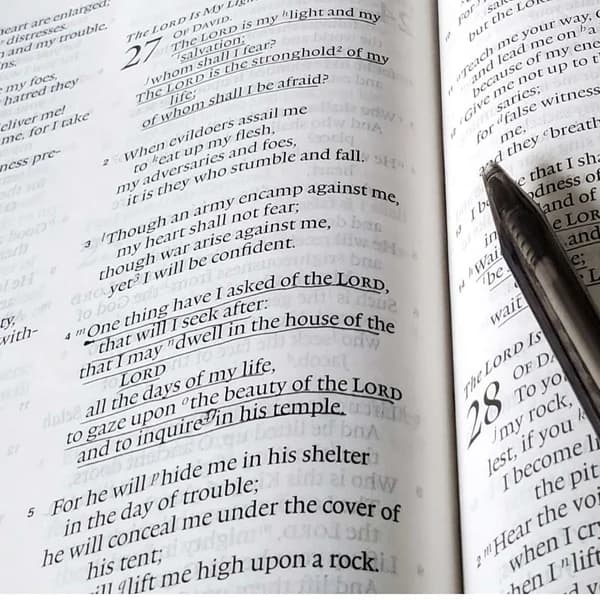 heart are enlarged;
distresses.
and my trouble,
ns.
my foes,
hatred they
eliver me!
me, for I take
ness pre-
ty,
with-
THE LORD IS MY LIGHT
27 OF DAVID.
The LORD is my hlight and my
isalvation;
jwhom shall I fear?
The LORD is the stronghold2 of my
life;
of whom shall I be afraid?
2 When evildoers assail me
to keat up my flesh,
my adversaries and foes,
it is they who stumble and fall.
3 lThough an army encamp against me,
my heart shall not fear;
though war arise against me,
yet3 I will be confident.
4 mOne thing have I asked of the LORD,
that will I seek after:
that I may ndwell in the house of the
LORD
all the days of my life,
to gaze upon othe beauty of the LORD
and to inquire in his temple.
5 For he will phide me in his shelter
in the day of trouble;
he will conceal me under the cover of
his tent;
qlift me high upon a rock.
but the LORD
Teach me your way,
and lead me on a
because of my ene
Give me not up to t
saries;
for dfalse witness
me,
they ebreath
that I sha
odness of
land of
e LOR
and
be
wait
THE LORD IS
28 OF DA
To yo
jmy rock,
lest, if you
I become li
the pit.
2 mHear the voi
when I cry
when I nlift